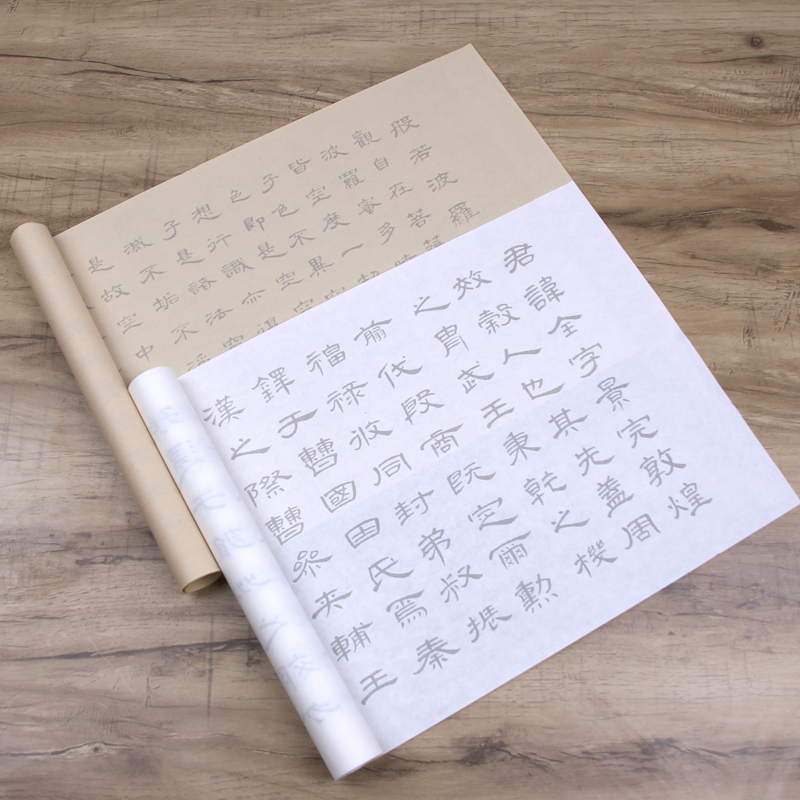 般若波羅
觀自在菩薩
波羅蜜多時
皆空度一切
子色不異空
色即是空空
想行識亦
子是諸法空
滅不垢不淨
是故空中
君諱全字景完敦煌
效穀人也其先蓋周
之胄武王秉乾之機
翦伐殷商既定爾勳
福祿攸同封弟叔振
鐸于曹國因氏焉秦
漢之際曹參夾輔王